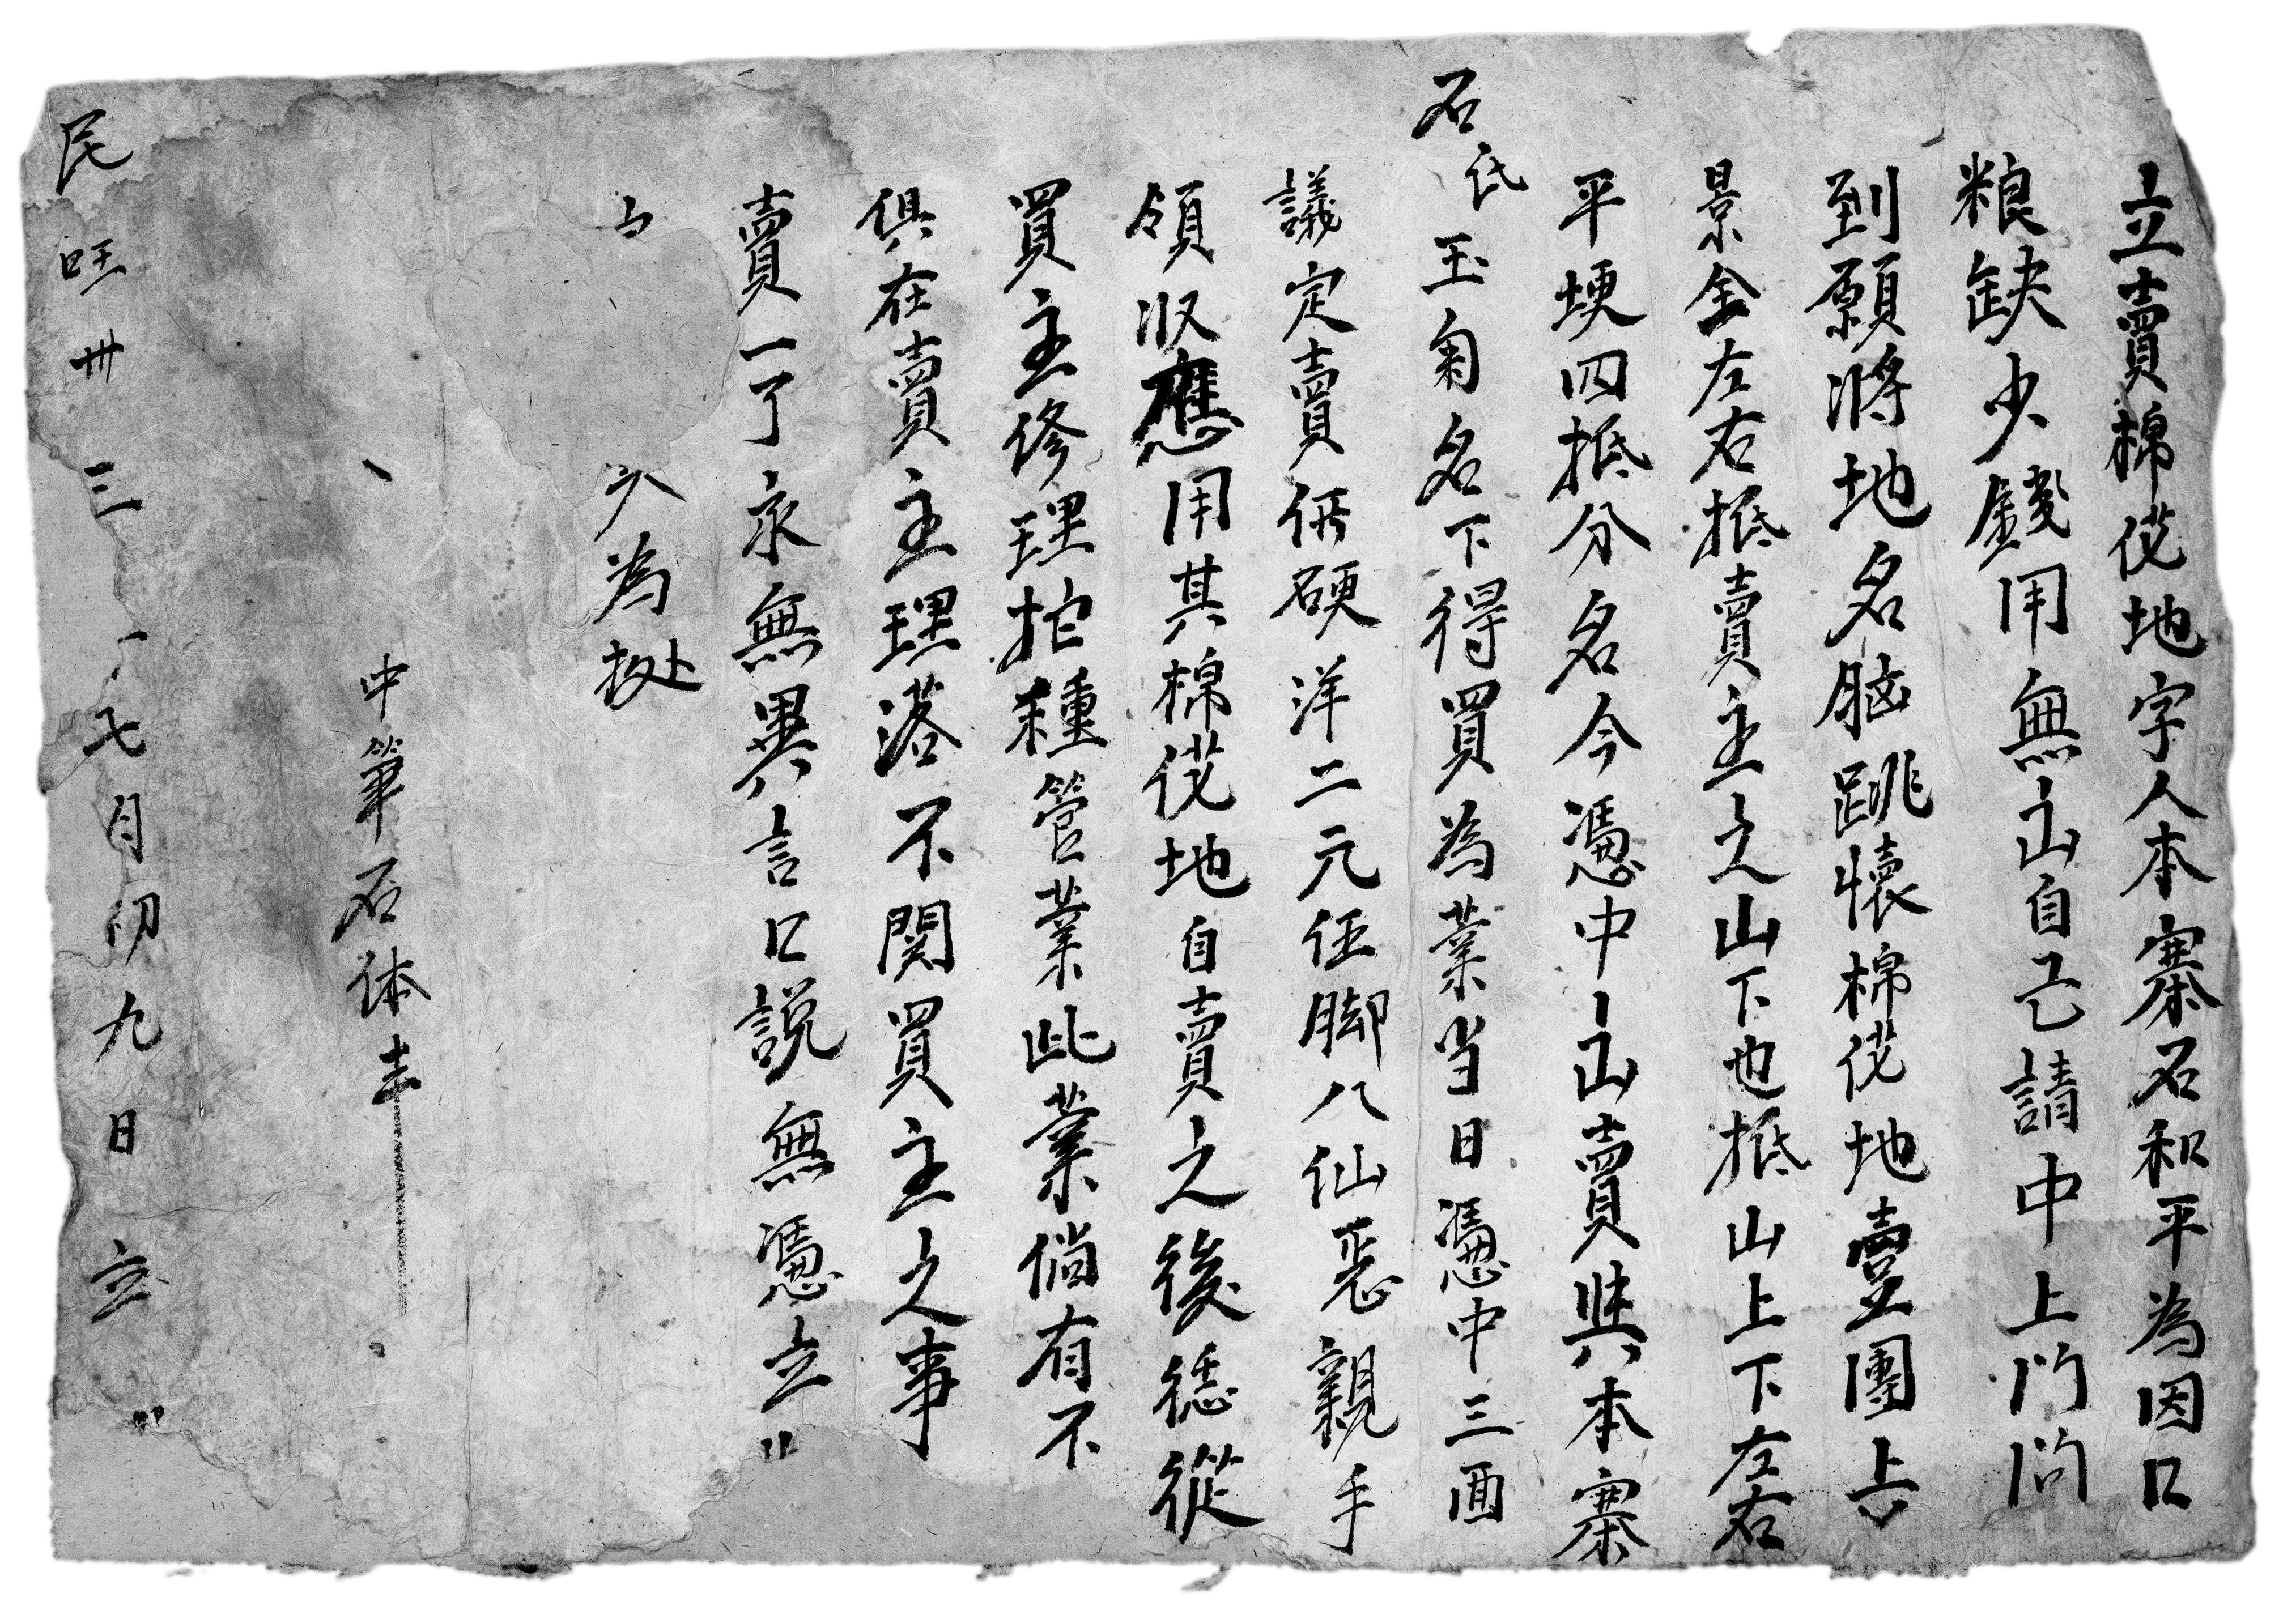 立賣棉花地字人本寨石和平為因口
粮缺少錢用無山自己請中上門問
到願將地名脑跳懷棉花地壹團上
景全左右抵賣主之山下也抵山上下左右
平埂四抵分名今憑中山賣與本寨
石氏玉菊名下得買為業当日憑中三面
議定賣價硬洋二元伍脚八仙恁親手
領収應用其棉花地自賣之後徳從
買主修理拕種管業此業倘有不
俱在賣主理落不関買主之事
賣一了永無異言口説無憑立
為処
中筆石体丰
民 卅三 七月初九日 立